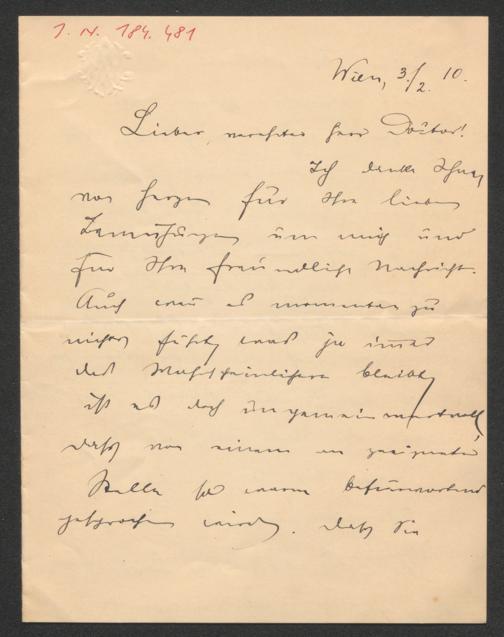 J. N. 184.481
Wien, 3./2. 10.
Lieber, verehrter Herr Doctor!
Ich danke Ihnen
von Herzen für Ihre lieben
Bemühungen um mich und
für Ihre freundliche Nachricht.
Auch wenn es momentan zu
nichts führt, was ja immer
das Wahrscheinlichere bleibt,
ist es doch ungemein wertvoll
daß von einem an geeigneter
Stelle so warm befürwortend
gesprochen wird. Daß Sie